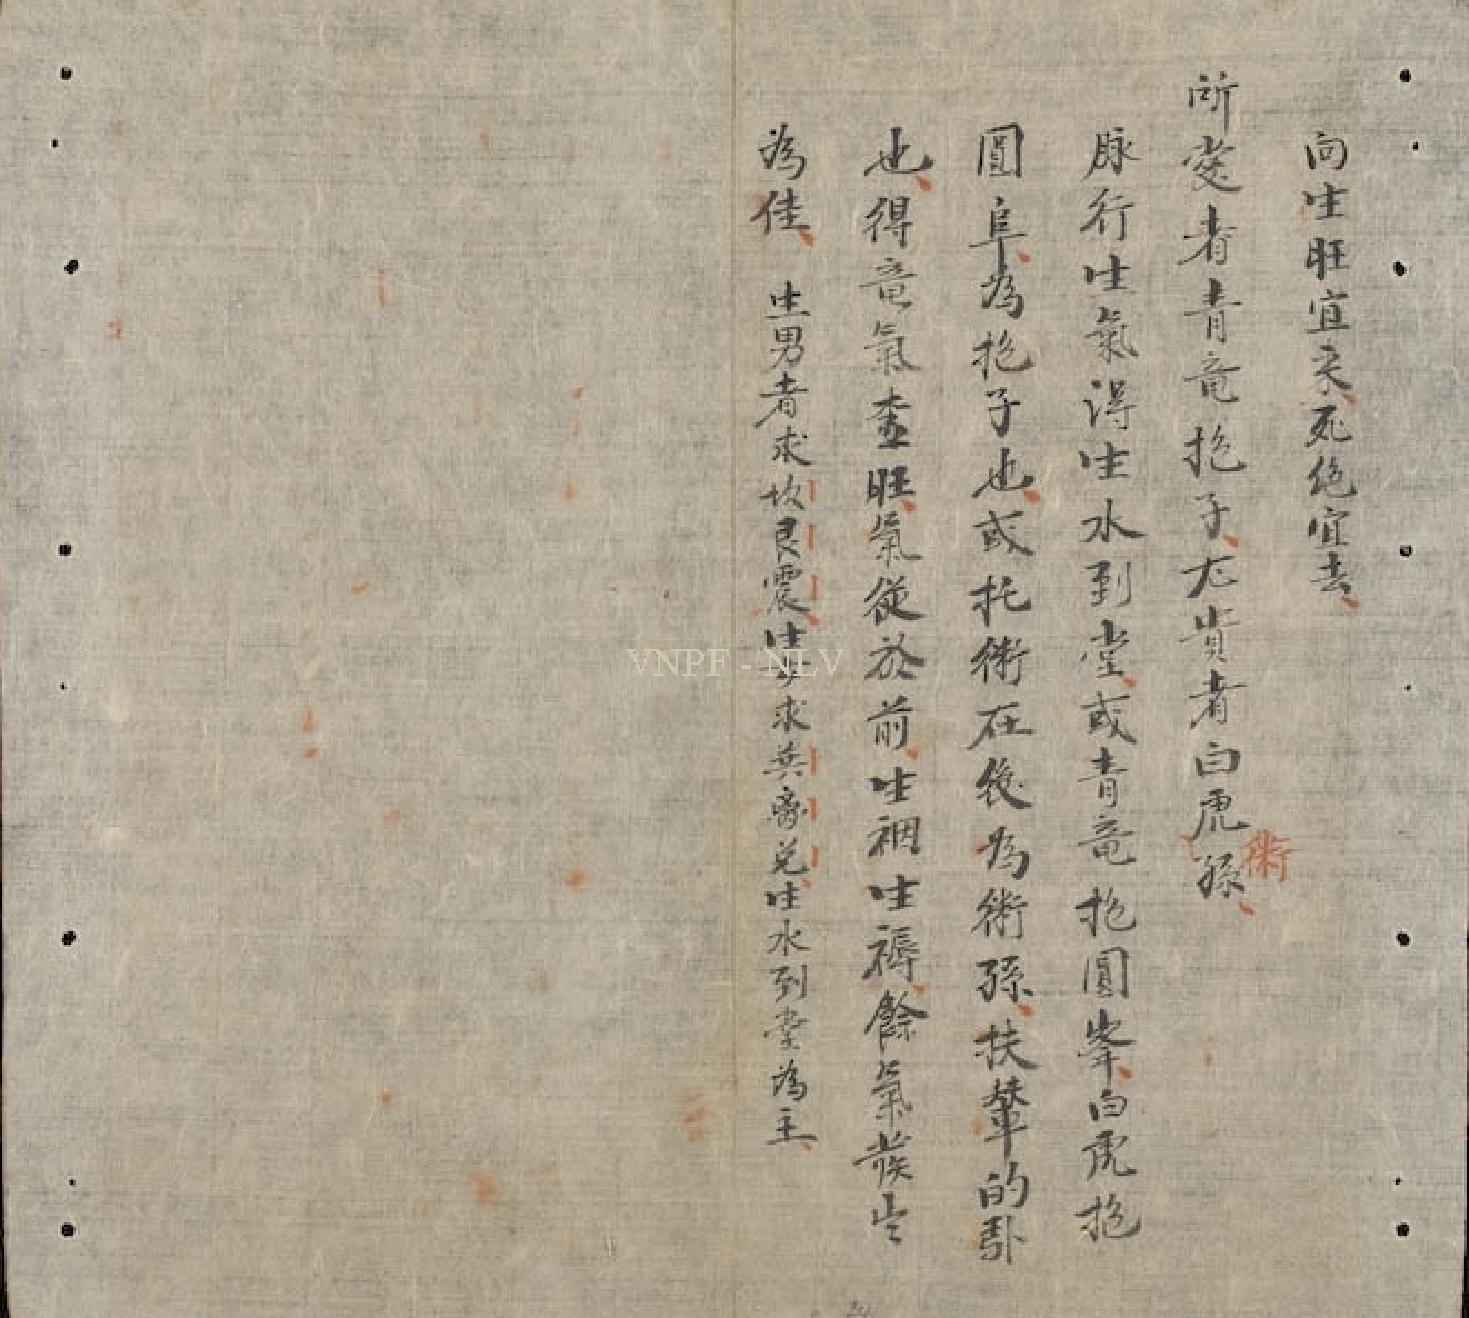 向生旺宜来死絶宜去
所愛者青竜抱子尤貴者白虎孫
術
脉行生氣得生水到堂或青竜抱圓峯白虎抱
圓阜為抱子也或托術在後為術孫扶輦的卦
也得竜氣查旺氣從於前生裀生褥餘氣
為佳 生男者求坎艮震生女求巽离兌生水到堂為主
VNPF - NLV